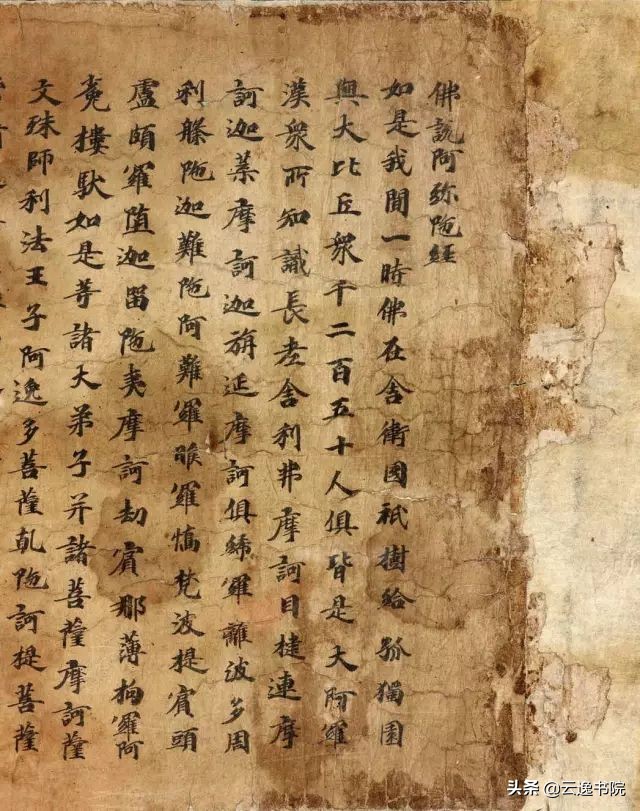 佛說阿弥陁経
如是我聞一時佛在舍衛國祇樹給孤獨園
與大比丘衆千二百五十人俱皆是大阿羅
漢衆所知識長老舍利弗摩訶目揵連摩
訶迦葉摩訶迦旃延摩訶俱絺羅離波多周
利槃陁迦難陁阿難羅睺羅憍梵波提賓頭
盧頗羅堕迦留陁夷摩訶劫賓那薄拘羅阿
㝹樓馱如是等諸大弟子并諸菩薩摩訶薩
文殊師利法王子阿逸多菩薩乹陁訶提菩薩
头条 @云逸书院